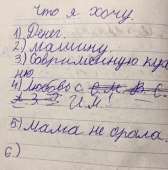 Что я хочу.
1) Денег.
2) машину
3) Современную кух
ню.
4) любовь с
И.М.!
5) Мама не орала.
6.)